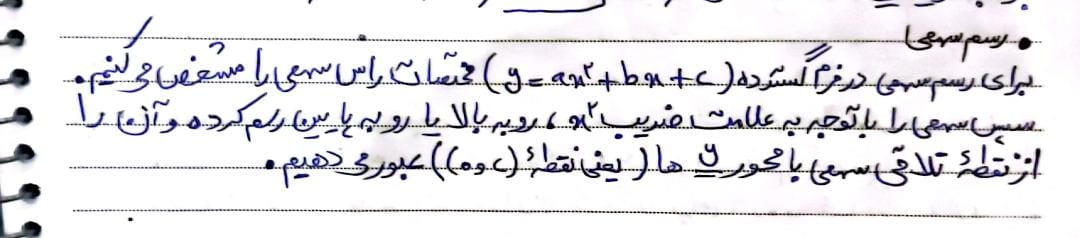 • رسم سهمی
برای رسم سهمی در فرم گسترده (y = ax² + bx + c) مختصات راس سهمی را مشخص می کنیم.
سپس سهمی را با توجه به علامت ضریب x²، رو به بالا یا رو به پایین رسم کرده و آن را
از نقطهٔ تلاقی سهمی با محور y ها (یعنی نقطهٔ (0,c)) عبور می دهیم.